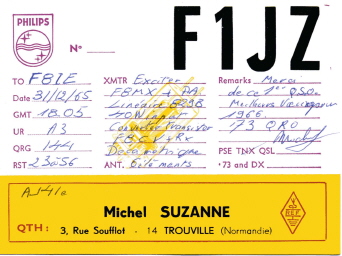 PHILIPS
F1JZ
N°
TO F8IE
Date 31/12/65
GMT 18.05
UR A3
QRG 144
RST
XMTR Exciter
F8MX + PA
Linéaire
40W input
Converter transistor
ANT. 6 éléments
Remarks Merci
de ce 1er QSO.
Meilleurs Vœux pour
1966.
73 QRO
PSE TNX QSL
73 and DX
Michel SUZANNE
QTH : 3, Rue Soufflot - 14 TROUVILLE (Normandie)
R.E.F.